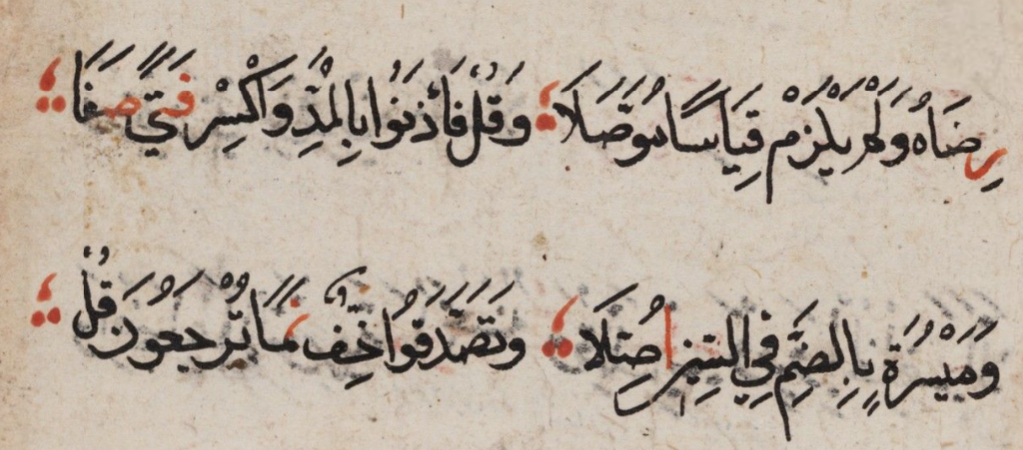 رِضَاهُ وَلَمْ يَلْزَمْ قِيَاسًا مُوَصَّلَا ؛ وَقُلْ فَأْذَنُوا بِالْمَدِّ وَاكْسِرْ فَتًى صَفَا ؛
وَمَيْسُرَةٍ بِالضَّمِّ فِي السِّينِ اُصِّلَا ؛ وَتَصَّدَّقُوا خِفٌّ نَمَا تُرْجَعُونَ قُلْ ؛